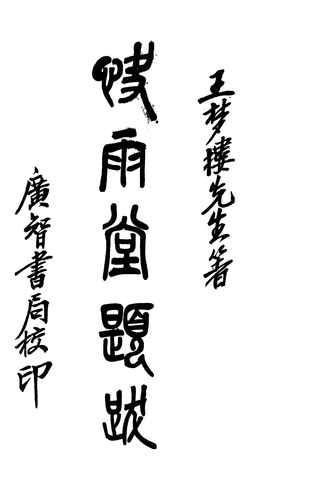 王梦樓先生著
快雨堂題跋
廣智書局校印